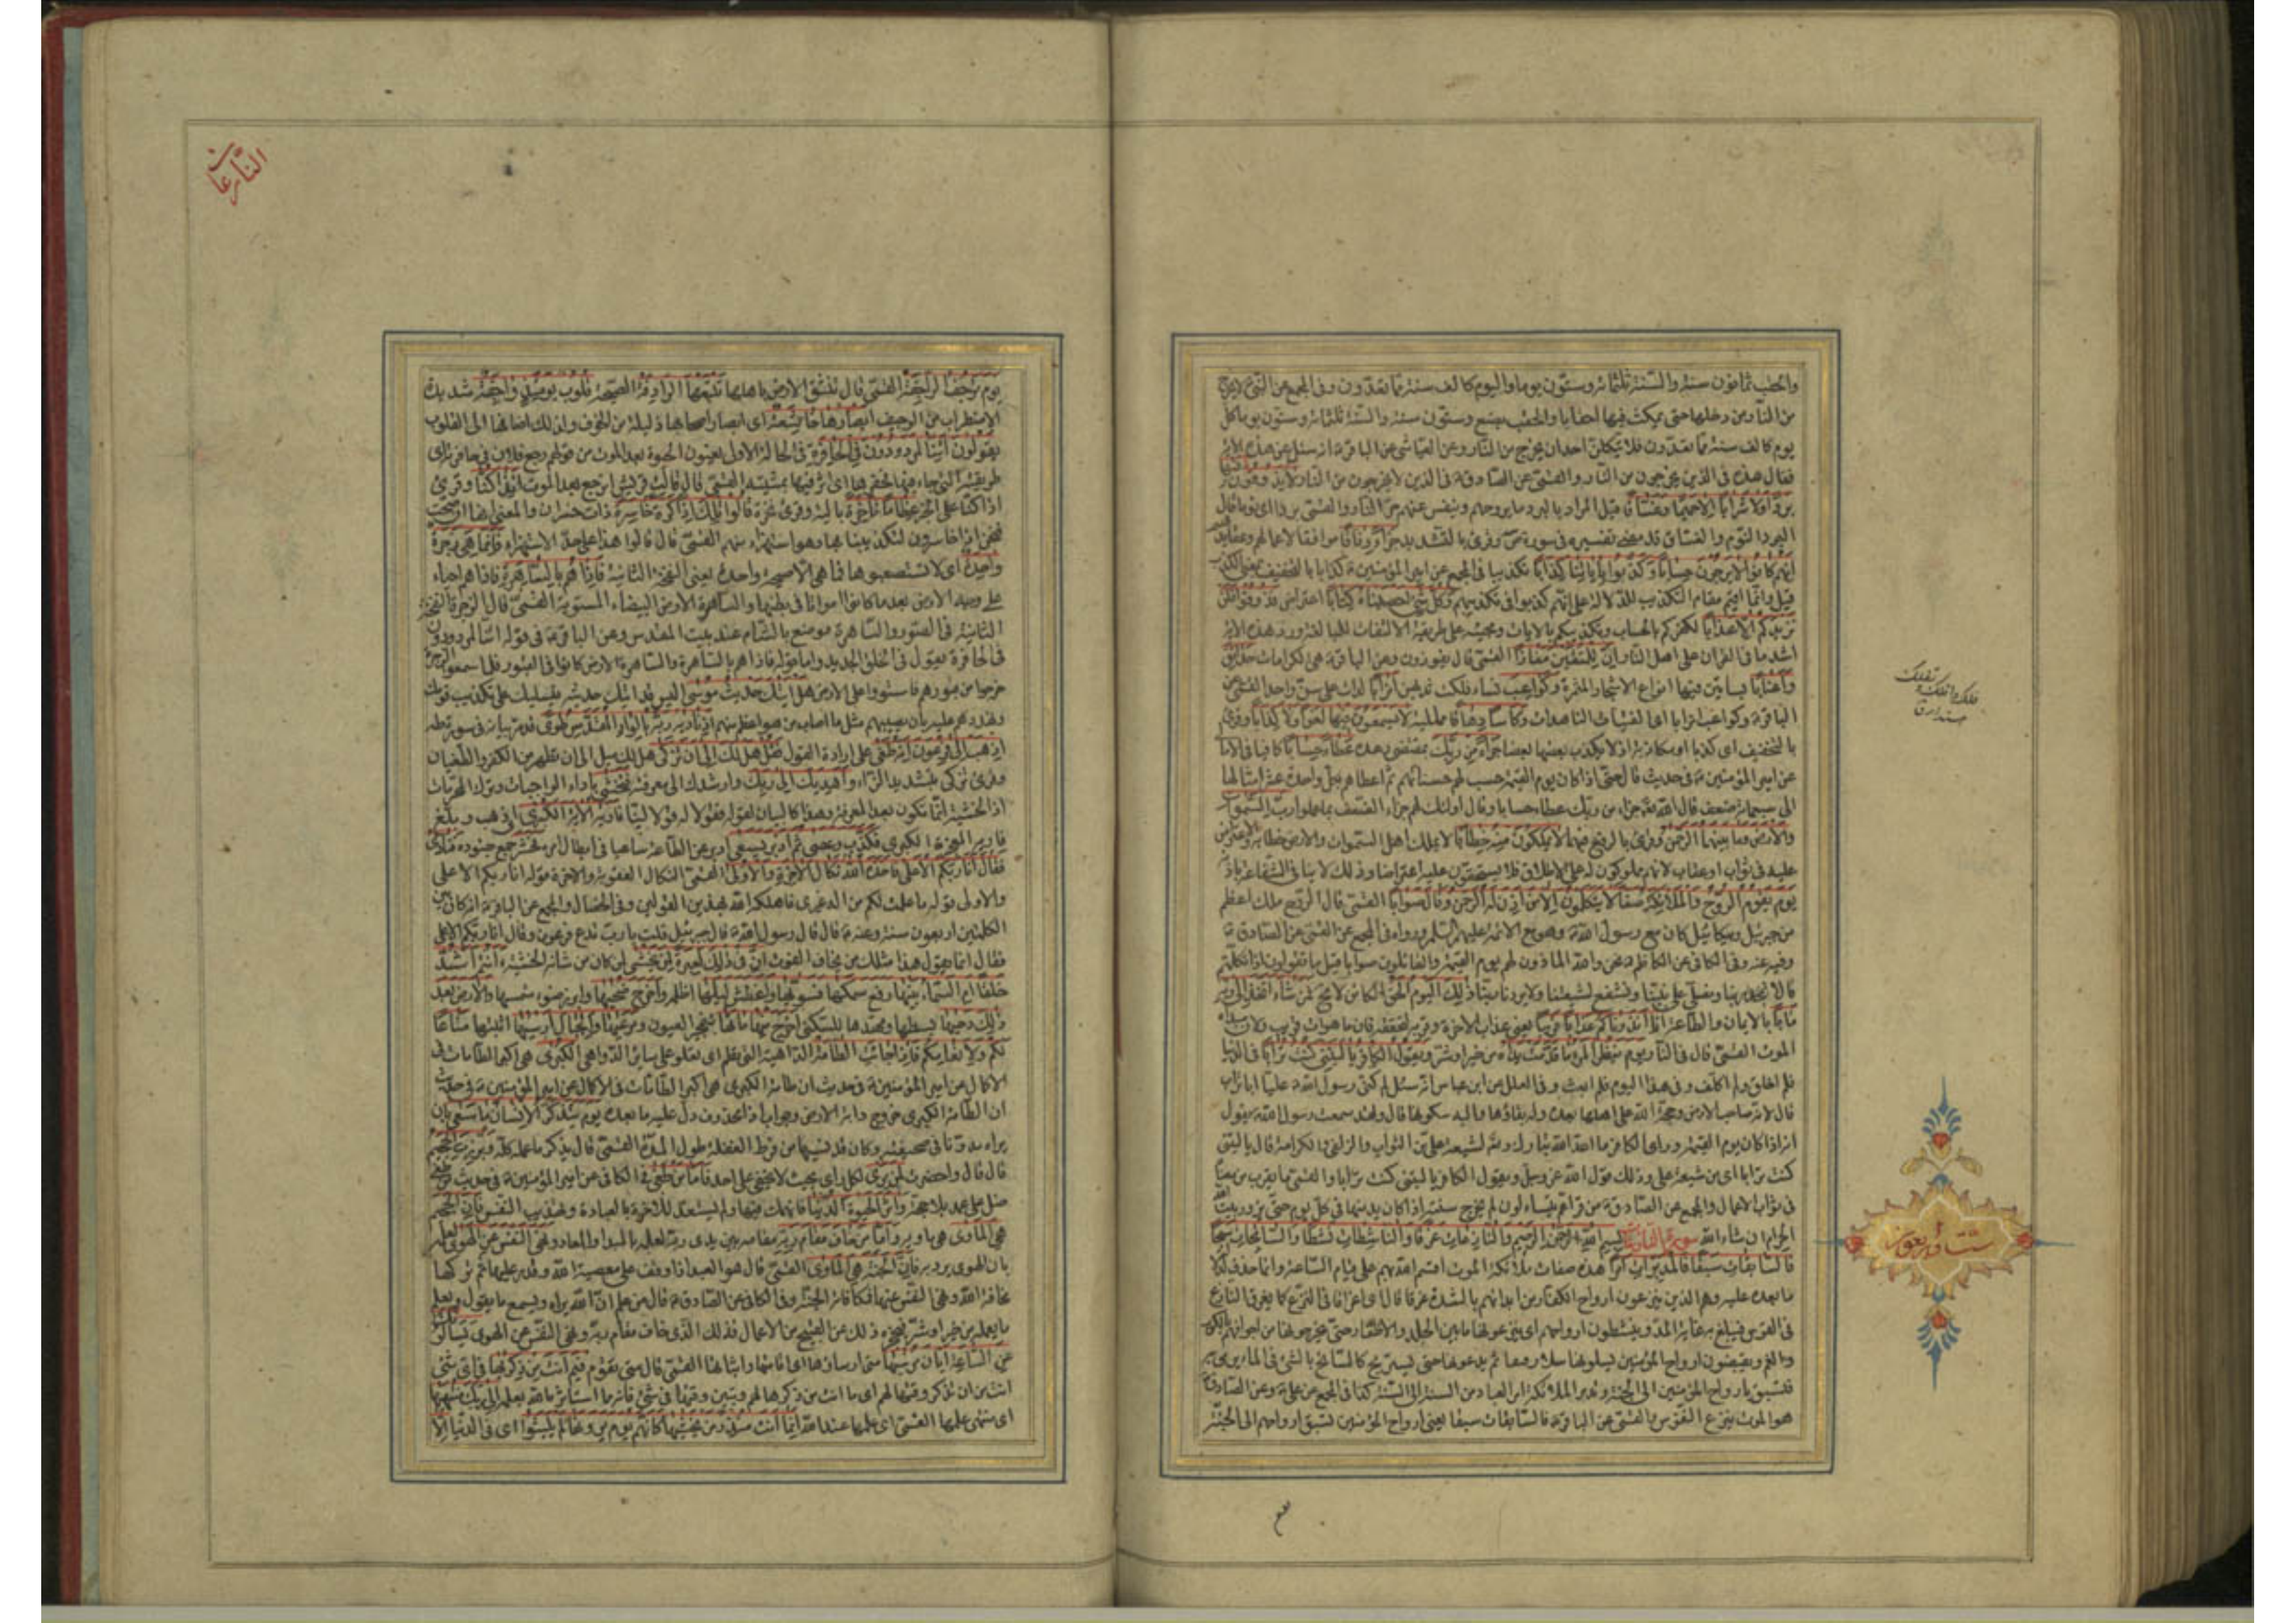 والحقب ثمانون سنة والسنة ثلثمائة وستون يوما واليوم كالف سنة مما تعدون وفى المجمع عن النبى لا يخرج
من النار من دخلها حتى يمكث فيها احقابا والحقب بضع وستون سنة والسنة ثلثمائة وستون يوما كل
يوم كالف سنة مما تعدون فلا يتكلن احد ان يخرج من النار وعن العياشى عن الباقر انه سئل عن هذه الاية
فقال هذه فى الذين يخرجون من النار والقمى عن الصادق قال فى الذين لا يخرجون من النار لا يذوقون فيها
بردا ولا شرابا الا حميما وغساقا قيل المراد بالبرد ما يروحهم وينفس عنهم حر النار والقمى بردا اى نوما قال
البرد النوم والغساق قد مضى تفسيره فى سورة ص وقرئ بالتشديد جزاء وفاقا موافقا لاعمالهم وعقايدهم
انهم كانوا لا يرجون حسابا وكذبوا باياتنا كذابا تكذيبا فى المجمع عن امير المؤمنين كذابا بالتخفيف بمعنى الكذب
قيل وانما اقيم مقام التكذيب للدلالة على انهم كذبوا فى تكذيبهم وكل شئ احصيناه كتابا اعتراض فذوقوا فلن
نزيدكم الا عذابا لكفركم بالحساب وتكذيبكم بالايات ومجيئه على طريقة الالتفات للمبالغة وورد هذه الاية
اشد ما فى القران على اهل النار ان للمتقين مفازا القمى قال يفوزون وعن الباقر هى الكرامات حدائق
واعنابا بساتين فيها انواع الاشجار المثمرة وكواعب نساء فلكت ثديهن اترابا لدات على سن واحد القمى عن
الباقر وكواعب اترابا اى الفتيات الناهدات وكاسا دهاقا ممتلية لا يسمعون فيها لغوا ولا كذابا وقرئ
بالتخفيف اى كذبا او مكاذبة اذ لا يكذب بعضهم بعضا جزاء من ربك بمقتضى وعده عطاء حسابا كافيا فى الامالى
عن امير المؤمنين فى حديث قال حتى اذا كان يوم القيمة حسب لهم حسناتهم ثم اعطاهم بكل واحدة عشر امثالها
الى سبعمائة ضعف قال الله تعالى جزاء من ربك عطاء حسابا وقال اولئك لهم جزاء الضعف بما عملوا رب السموات
والارض وما بينهما الرحمن وقرئ بالرفع فيهما لا يملكون منه خطابا لا يملك اهل السموات والارض خطابه والاعتراض
عليه فى ثواب او عقاب لانهم مملوكون له على الاطلاق فلا يستحقون عليه اعتراضا وذلك لا ينافى الشفاعة باذنه
يوم يقوم الروح والملائكة صفا لا يتكلمون الا من اذن له الرحمن وقال صوابا القمى قال الروح ملك اعظم
من جبرئيل وميكائيل كان مع رسول الله وهو مع الائمة عليهم السلم ورواه فى المجمع عن القمى عن الصادق
وفيه عنه وفى الكافى عن الكاظم نحن والله الماذون لهم يوم القيمة والقائلون صوابا قيل ما تقولون اذا تكلمتم
قالا نمجد ربنا ونصلى على نبينا ونشفع لشيعتنا ولا يردنا ربنا ذلك اليوم الحق الكائن لا محة فمن شاء اتخذ الى ربه
مابا بالايمان والطاعة انا انذرناكم عذابا قريبا يعنى عذاب الاخرة وقربه لتحققه فان ما هو ات قريب ولان مبداه
الموت القمى قال فى النار يوم ينظر المرء ما قدمت يداه من خير او شر ويقول الكافر يا ليتنى كنت ترابا فى الدنيا
فلم اخلق ولم اكلف وفى هذا اليوم فلم ابعث وفى العلل عن ابن عباس انه سئل لم كنى رسول الله عليا ابا تراب
قال لانه صاحب الارض وحجة الله على اهلها بعده وله بقاؤها واليه سكونها قال ولقد سمعت رسول الله يقول
انه اذا كان يوم القيمة وراى الكافر ما اعد الله تبارك وتعالى لشيعة على من الثواب والزلفى والكرامة قال يا ليتنى
كنت ترابا اى من شيعة على وذلك قول الله عز وجل ويقول الكافر يا ليتنى كنت ترابا والقمى ما يقرب من معناه
فى ثواب الاعمال والمجمع عن الصادق من قرا عم يتساءلون لم يخرج سنته اذا كان يدمنها فى كل يوم حتى يزور بيت الله
الحرام ان شاء الله سورة النازعات بسم الله الرحمن الرحيم والنازعات غرقا والناشطات نشطا والسابحات سبحا
فالسابقات سبقا فالمدبرات امرا هذه صفات ملائكة الموت اقسم الله بهم على قيام الساعة وانما حذف لدلالة
ما بعده عليه وهم الذين ينزعون ارواح الكفار من ابدانهم بالشدة غرقا اى اغراقا فى النزع كما يغرق النازع
فى القوس فيبلغ به غاية المد وينشطون ارواحهم اى ينزعونها ما بين الجلد والاظفار حتى يخرجونها من اجوافهم بالكرب
والغم ويقبضون ارواح المؤمنين يسلونها سلا رفيقا ثم يدعونها حتى تستريح كالسابح بالشئ فى الماء يرمى به
فتسبق بارواح المؤمنين الى الجنة وتدبر الملائكة امر العباد من السنة الى السنة كذا فى المجمع عن على وعن الصادق
هو الموت ينزع النفوس والقمى عن الباقر فالسابقات سبقا يعنى ارواح المؤمنين تسبق ارواحهم الى الجنة
النازعات
يوم ترجف الراجفة القمى قال تنشق الارض باهلها تتبعها الرادفة الصيحة قلوب يومئذ واجفة شديدة
الاضطراب من الوجيف ابصارها خاشعة اى ابصار اصحابها ذليلة من الخوف ولذلك اضافها الى القلوب
يقولون ائنا لمردودون فى الحافرة فى الحالة الاولى يعنون الحيوة بعد الموت من قولهم رجع فلان فى حافرته اى
طريقته التى جاء فيها فحفرها اى اثر فيها بمشيته القمى قال قالت قريش انرجع بعد الموت ائذا كنا وقرئ
اذا كنا على الخبر عظاما ناخرة بالية وقرئ نخرة قالوا تلك اذا كرة خاسرة ذات خسران والمعنى انها ان صحت
فنحن اذا خاسرون لتكذيبنا بها وهو استهزاء منهم القمى قال قالوا هذا على حد الاستهزاء فانما هى زجرة
واحدة اى لا تستصعبوها فما هى الا صيحة واحدة يعنى النفخة الثانية فاذا هم بالساهرة فاذا هم احياء
على وجه الارض بعد ما كانوا امواتا فى بطنها والساهرة الارض البيضاء المستوية القمى قال الزجرة النفخة
الثانية فى الصور والساهرة موضع بالشام عند بيت المقدس وعن الباقر فى قوله ائنا لمردودون
فى الحافرة يقول فى الخلق الجديد واما قوله فاذا هم بالساهرة والساهرة الارض كانوا فى القبور فلما سمعوا الزجرة
خرجوا من قبورهم فاستووا على الارض هل اتيك حديث موسى اليس قد اتيك حديثه فيسليك على تكذيب قومك
وتهددهم عليه بان يصيبهم مثل ما اصاب من هو اعظم منهم اذ ناديه ربه بالواد المقدس طوى قد مر بيانه فى سورة طه
اذهب الى فرعون انه طغى على ارادة القول فقل هل لك الى ان تزكى هل لك ميل الى ان تطهر من الكفر والطغيان
وقرئ تزكى بتشديد الزاء واهديك الى ربك وارشدك الى معرفته فتخشى باداء الواجبات وترك المحرمات
اذ الخشية انما تكون بعد المعرفة وهذا كالبيان لقوله فقولا له قولا لينا فاريه الاية الكبرى اى ذهب وبلغ
فاريه المعجزة الكبرى فكذب وعصى ثم ادبر يسعى ادبر عن الطاعة ساعيا فى ابطال امره فحشر جمع جنوده فنادى
فقال انا ربكم الاعلى فاخذه الله نكال الاخرة والاولى القمى النكال العقوبة والاخرة قوله انا ربكم الاعلى
والاولى قوله ما علمت لكم من اله غيرى فاهلكه الله بهذين القولين وفى الخصال والمجمع عن الباقر انه كان بين
الكلمتين اربعون سنة وعنه قال قال رسول الله قال جبرئيل قلت يا رب تدع فرعون وقال انا ربكم الاعلى
فقال انما يقول هذا مثلك من يخاف الفوت ان فى ذلك لعبرة لمن يخشى لمن كان من شانه الخشية ءانتم اشد
خلقا ام السماء بنيها رفع سمكها فسويها واغطش ليلها اظلم واخرج ضحيها وابرز ضوء شمسها والارض بعد
ذلك دحيها بسطها ومهدها للسكنى اخرج منها ماءها بتفجير العيون ومرعيها والجبال ارسيها اثبتها متاعا
لكم ولانعامكم فاذا جاءت الطامة الداهية التى تطم اى تعلو على سائر الدواهى الكبرى هى اكبر الطامات فى
الاكمال عن امير المؤمنين فى حديث ان طامة الكبرى هى اكبر الطامات فى الاكمال عن امير المؤمنين فى حديث
ان الطامة الكبرى خروج دابة الارض وجواب اذا محذوف دل عليه ما بعده يوم يتذكر الانسان ما سعى بان
يراه مدونا فى صحيفته وكان قد نسيها من فرط الغفلة وطول المدة القمى قال يذكر ما عمله كله وبرزت الجحيم
قال قال واحضرت لمن يرى لكل راى بحيث لا يخفى على احد فاما من طغى فى الكافى عن امير المؤمنين فى حديث من طغى
ضل على عمد بلا حجة واثر الحيوة الدنيا فانهمك فيها ولم يستعد للاخرة بالعبادة وتهذيب النفس فان الجحيم
هى الماوى هى ماويه واما من خاف مقام ربه مقامه بين يدى ربه لعلمه بالمبدا والمعاد ونهى النفس عن الهوى لعلمه
بان الهوى يرديه فان الجنة هى الماوى القمى قال هو العبد اذا وقف على معصية الله وقدر عليها ثم تركها
مخافة الله ونهى النفس عنها فمكافاته الجنة وفى الكافى عن الصادق قال من علم ان الله يراه ويسمع ما يقول ويعلم
ما يعمله من خير او شر فيحجزه ذلك عن القبيح من الاعمال فذلك الذى خاف مقام ربه ونهى النفس عن الهوى يسالونك
عن الساعة ايان مرسيها متى ارساؤها اى اقامتها واثباتها القمى قال متى تقوم فيم انت من ذكريها فى اى شئ
انت من ان تذكر وقتها لهم اى ما انت من ذكرها لهم وتبيين وقتها فى شئ فانه مما استاثر الله بعلمه الى ربك منتهيها
اى منتهى علمها القمى اى علمها عند الله انما انت منذر من يخشيها كانهم يوم يرونها لم يلبثوا اى فى الدنيا الا